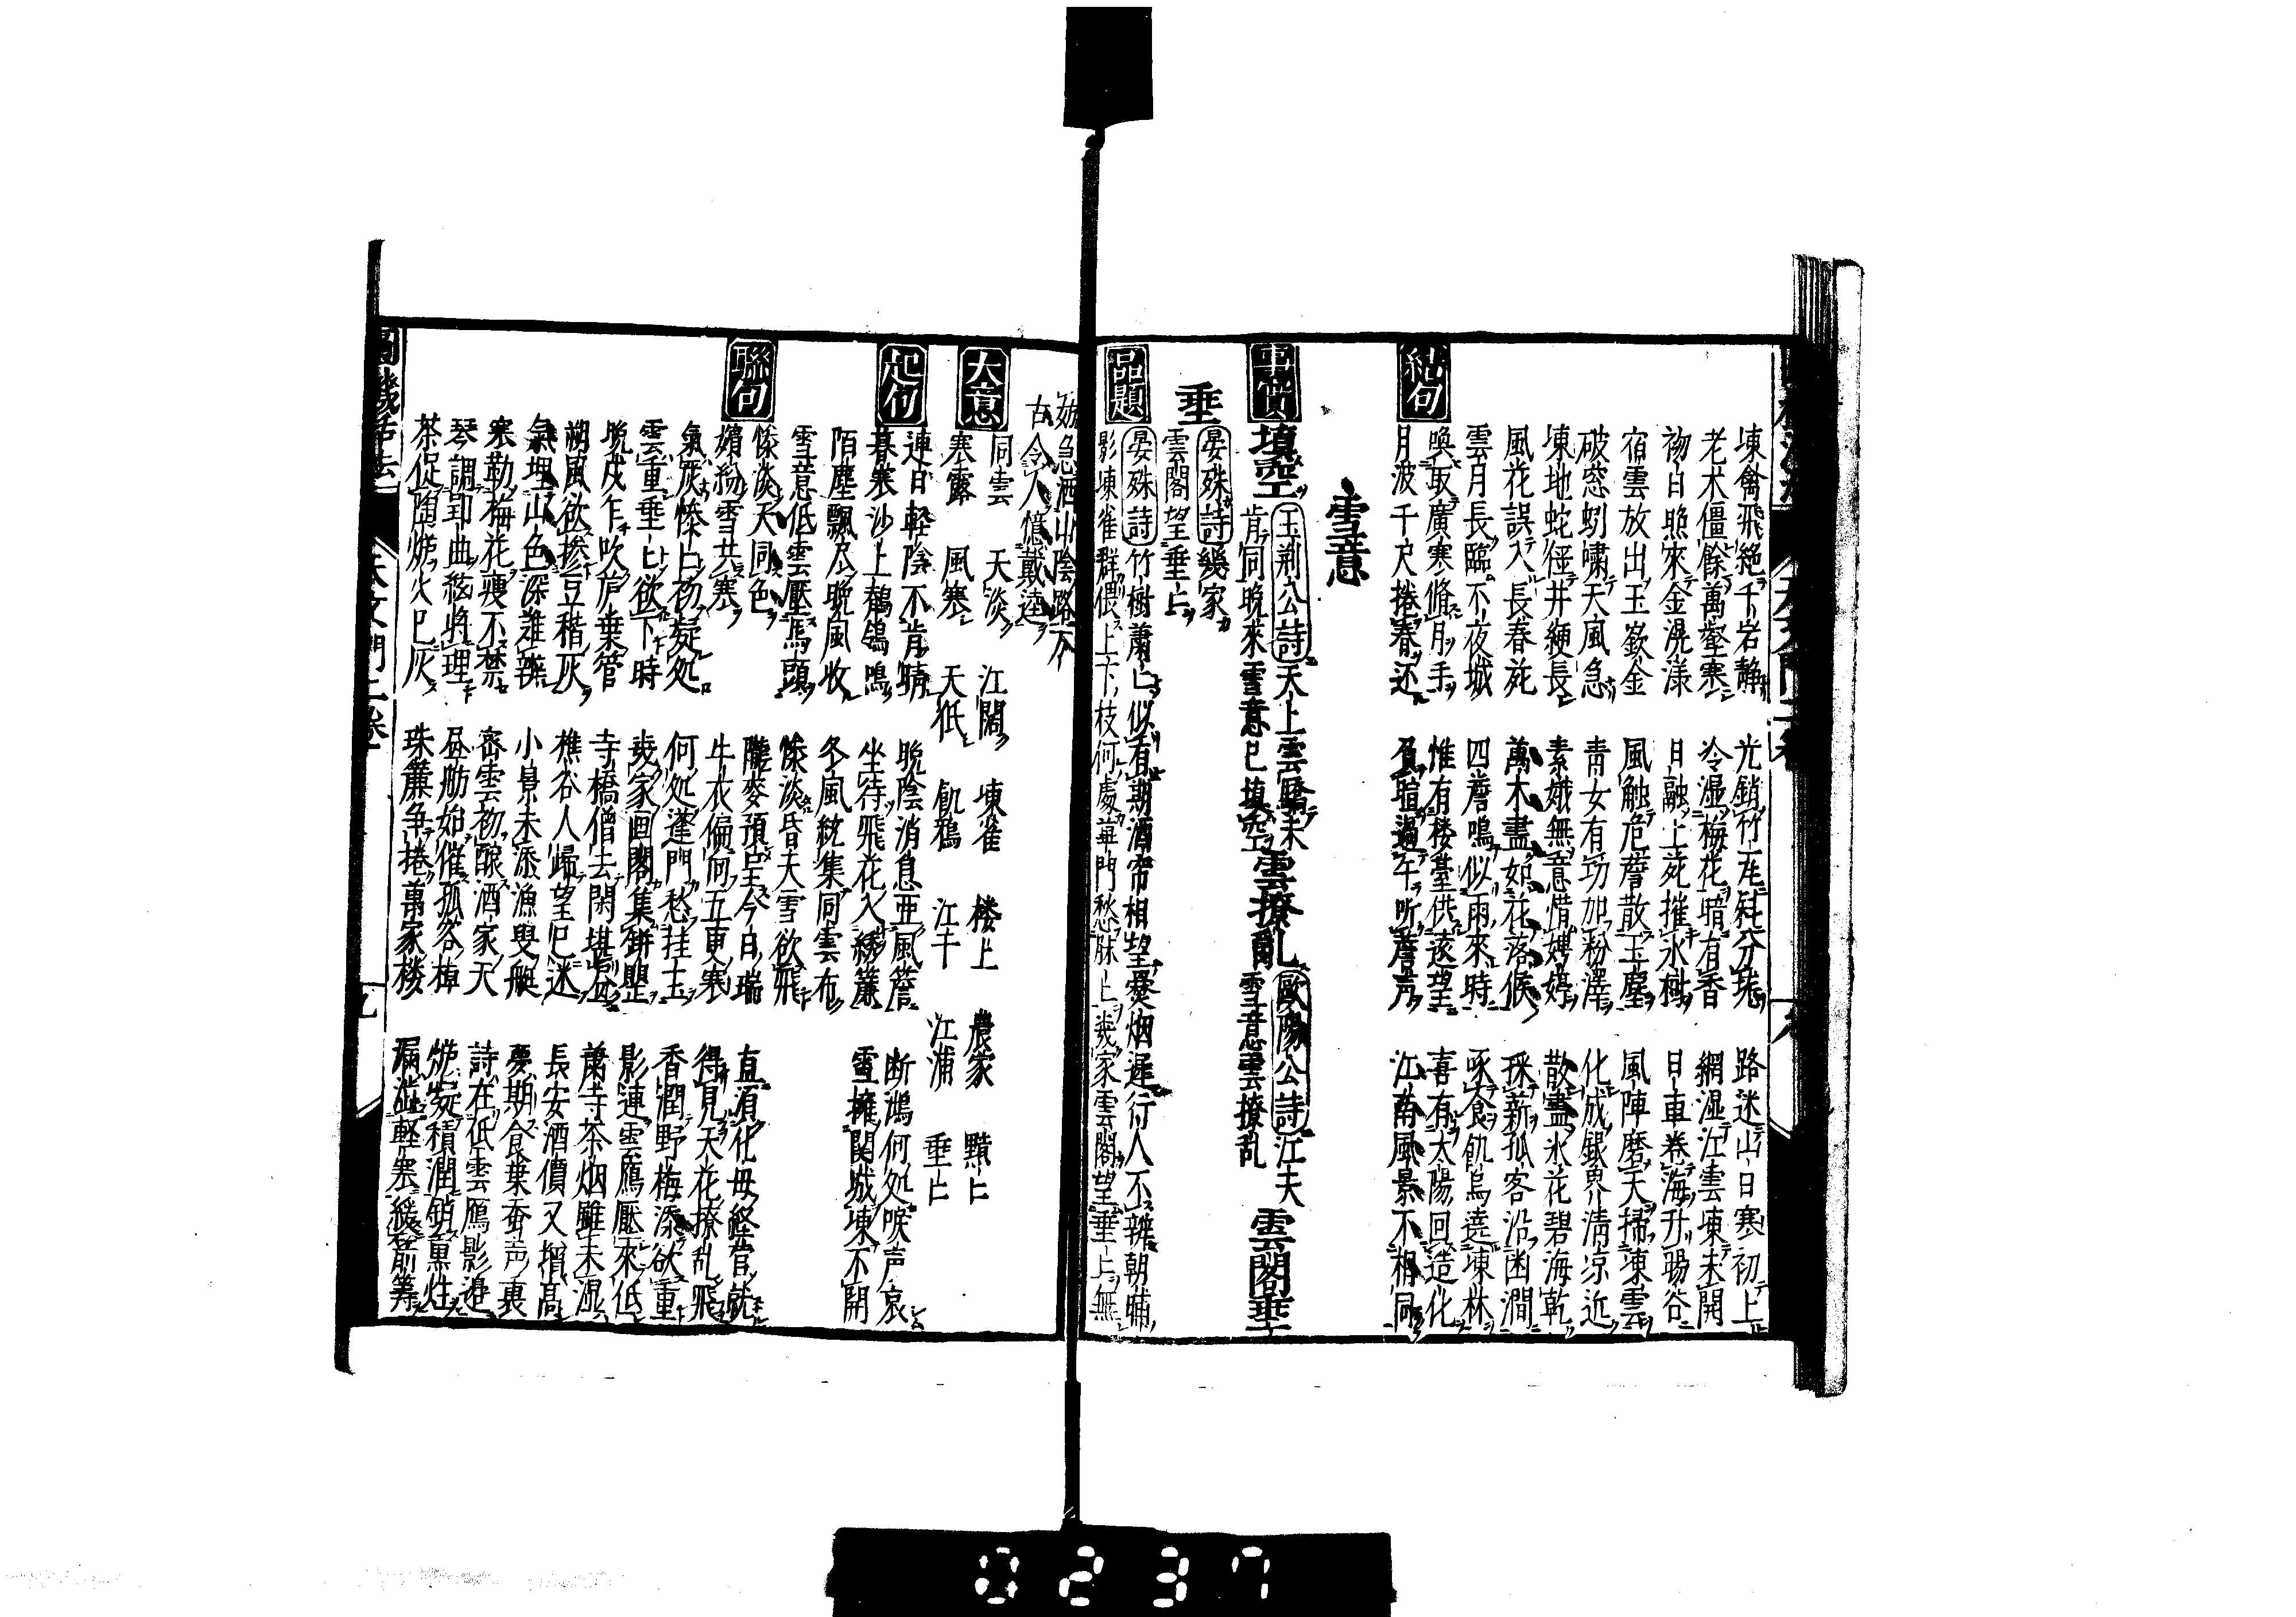 凍禽飛絶千岩静 光銷竹瓦 路迷山日寒初上
老木僵餘萬壑寒 冷湿梅花暗有香 網湿江雲凍未開
初日照來金滉漾 日融上苑摧氷樹 日車卷海升暘谷
宿雲放出玉嶔金 風触危簷散玉塵 風陣磨天掃凍雲
破窓蚓嘯天風急 青女有功加粉澤 化成銀界清凉近
凍地蛇 井綆長 素娥無意惜娉婷 散盡氷花碧海乾
風花誤入長春苑 萬木盡如花落候 採薪孤客沿幽澗
雲月長臨不夜城 四簷鳴似雨來時 啄食飢烏遶凍林
結句
喚取廣寒脩月手 惟有楼臺供遠望 喜有太陽回造化
月波千尺捲春还 負暄過午听簷声 江南風景不相同
雪意
事實
填空 王荆公詩 天上雲 未肯同晩來雪意已填空
雲撩亂 歐陽公詩 江天雪意雲撩乱
雲閣垂垂 晏殊詩 幾家雲閣望垂上
品題
晏殊詩 竹樹蕭匕似有期酒帘相望 烟遲行人不辨朝晡
影凍雀群偎上下枝何處 門愁 上幾家雲閣望垂上無
急洒山陰路不
古令人憶戴逵
大意
同雲 天淡 江閣 凍雀 楼上 農家 黯匕
寒露 風寒 天低 飢鴉 江干 江浦 垂匕
起句
連日軽陰不肯晴 晩陰消息亜風簷 断鴻何处唳声哀
暮寒沙上鶺鴒鳴 坐待飛花入綉簾 雪擁関城凍不開
陌塵飄尽晩風收 冬風 集同雲布
雪意低雲壓馬頭 惨淡昏天雪欲飛
聯句
惨淡天同色 隴麥預呈今日瑞 直須化母経營就
繽紛雪共寒 牛衣偏 五更寒 得見天花撩乱飛
氣灰惨匕初凝处 何处蓬門愁挂玉 香潤野梅添欲重
雲重垂匕欲下時 幾家画閣集 影連雲鴈壓來低
晩戍乍吹芦葉管 寺橋僧去閑堪 蕭寺茶烟雖未湿
朔風欲掺豆稭灰 樵谷人歸望已迷 長安酒價又損高
氣埋山色深難辨 小景未添漁叟艇 夢期食葉蚕声裏
寒勒梅花痩不禁 密雲初釀酒家天 詩在低雲鴈影邉
琴調郢曲絃将理 舫如催孤客棹 炉凝積潤銷熏炷
茶促陶炉火已灰 珠簾争捲萬家楼 漏 軽寒緩 籌
圓機活法 天文門二卷 九